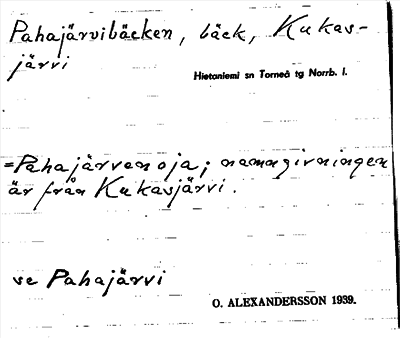 Pahajärvibäcken, bäck, Kukas-
järvi
Hietaniemi sn Torneå tg Norrb. l.
=Pahajärvenoja; namngivningen
är från Kukasjärvi.
se Pahajärvi
O. ALEXANDERSSON 1939.